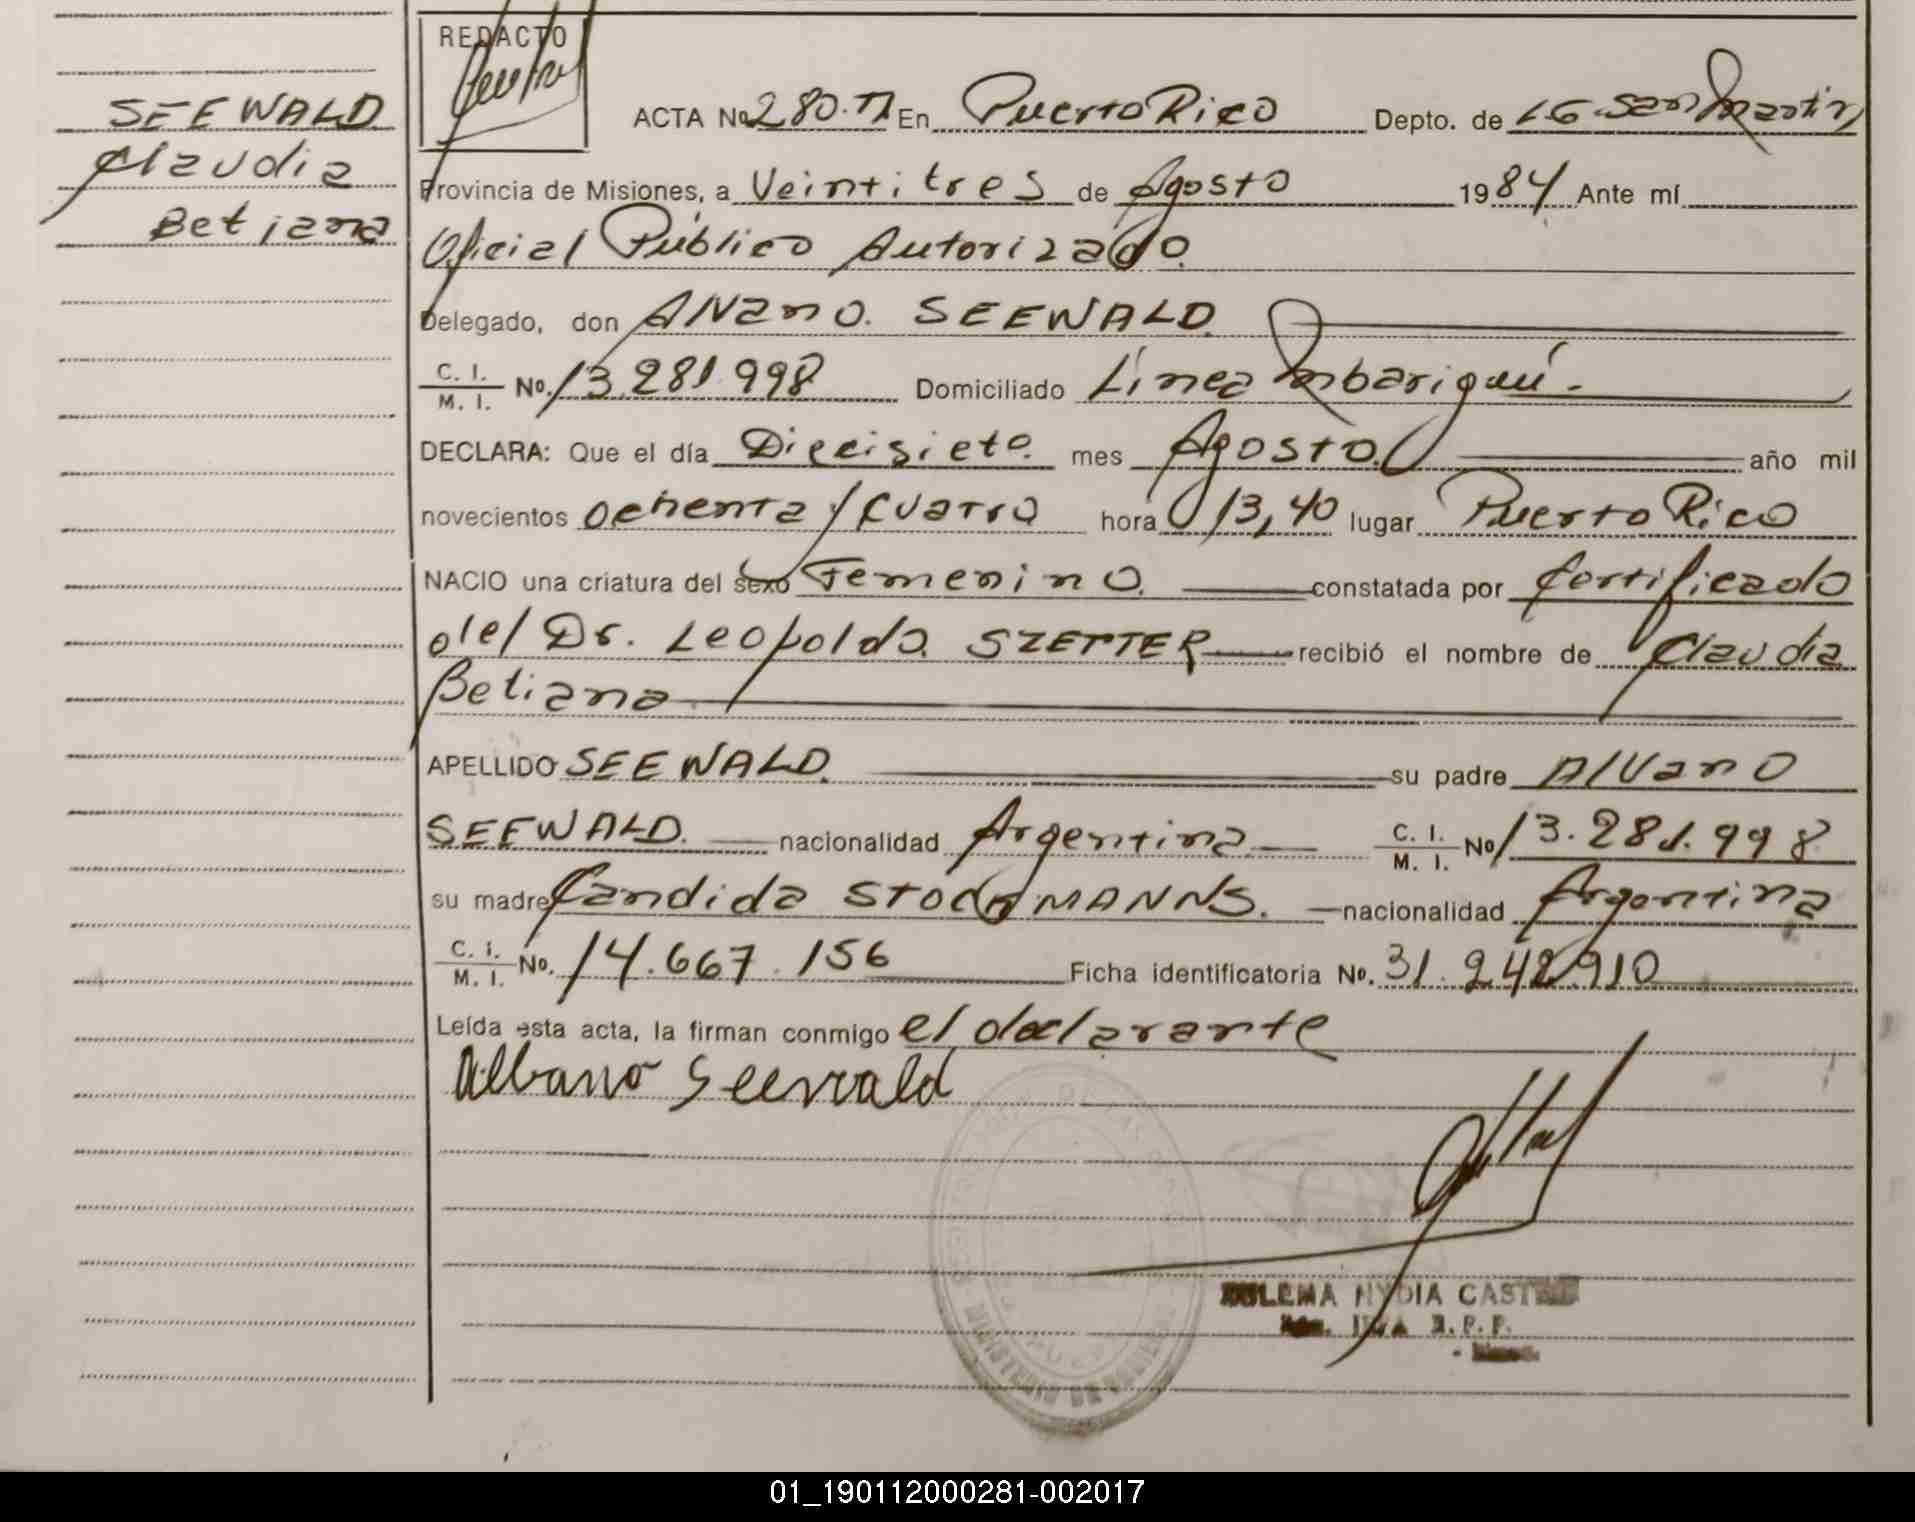 SEEWALD
Claudia
Betiana
REDACTO
ACTA No 280. En Puerto Rico Depto. de L.G. San Martin
Provincia de Misiones, a Veintitres de Agosto 1984 Ante mí
Oficial Público Autorizado.
Delegado, don Alvano. SEEWALD.
C. I. / M. I. No. 13.281.998 Domiciliado Línea Mbarigüí.
DECLARA: Que el día Diecisiete. mes Agosto. año mil
novecientos ochenta y cuatro hora 13,40 lugar Puerto Rico
NACIO una criatura del sexo Femenino. constatada por Certificado
del Dr. Leopoldo. SZEPTER recibió el nombre de Claudia
Betiana.
APELLIDO SEEWALD. su padre Alvano
SEEWALD. nacionalidad Argentina C. I. / M. I. No 13.281.998
su madre Candida STOCKMANNS. nacionalidad Argentina
C. I. / M. I. No. 14.667.156 Ficha identificatoria No. 31.242.910
Leída esta acta, la firman conmigo el declarante
Albano Seewald
ZULEMA NYDIA
01_190112000281-002017